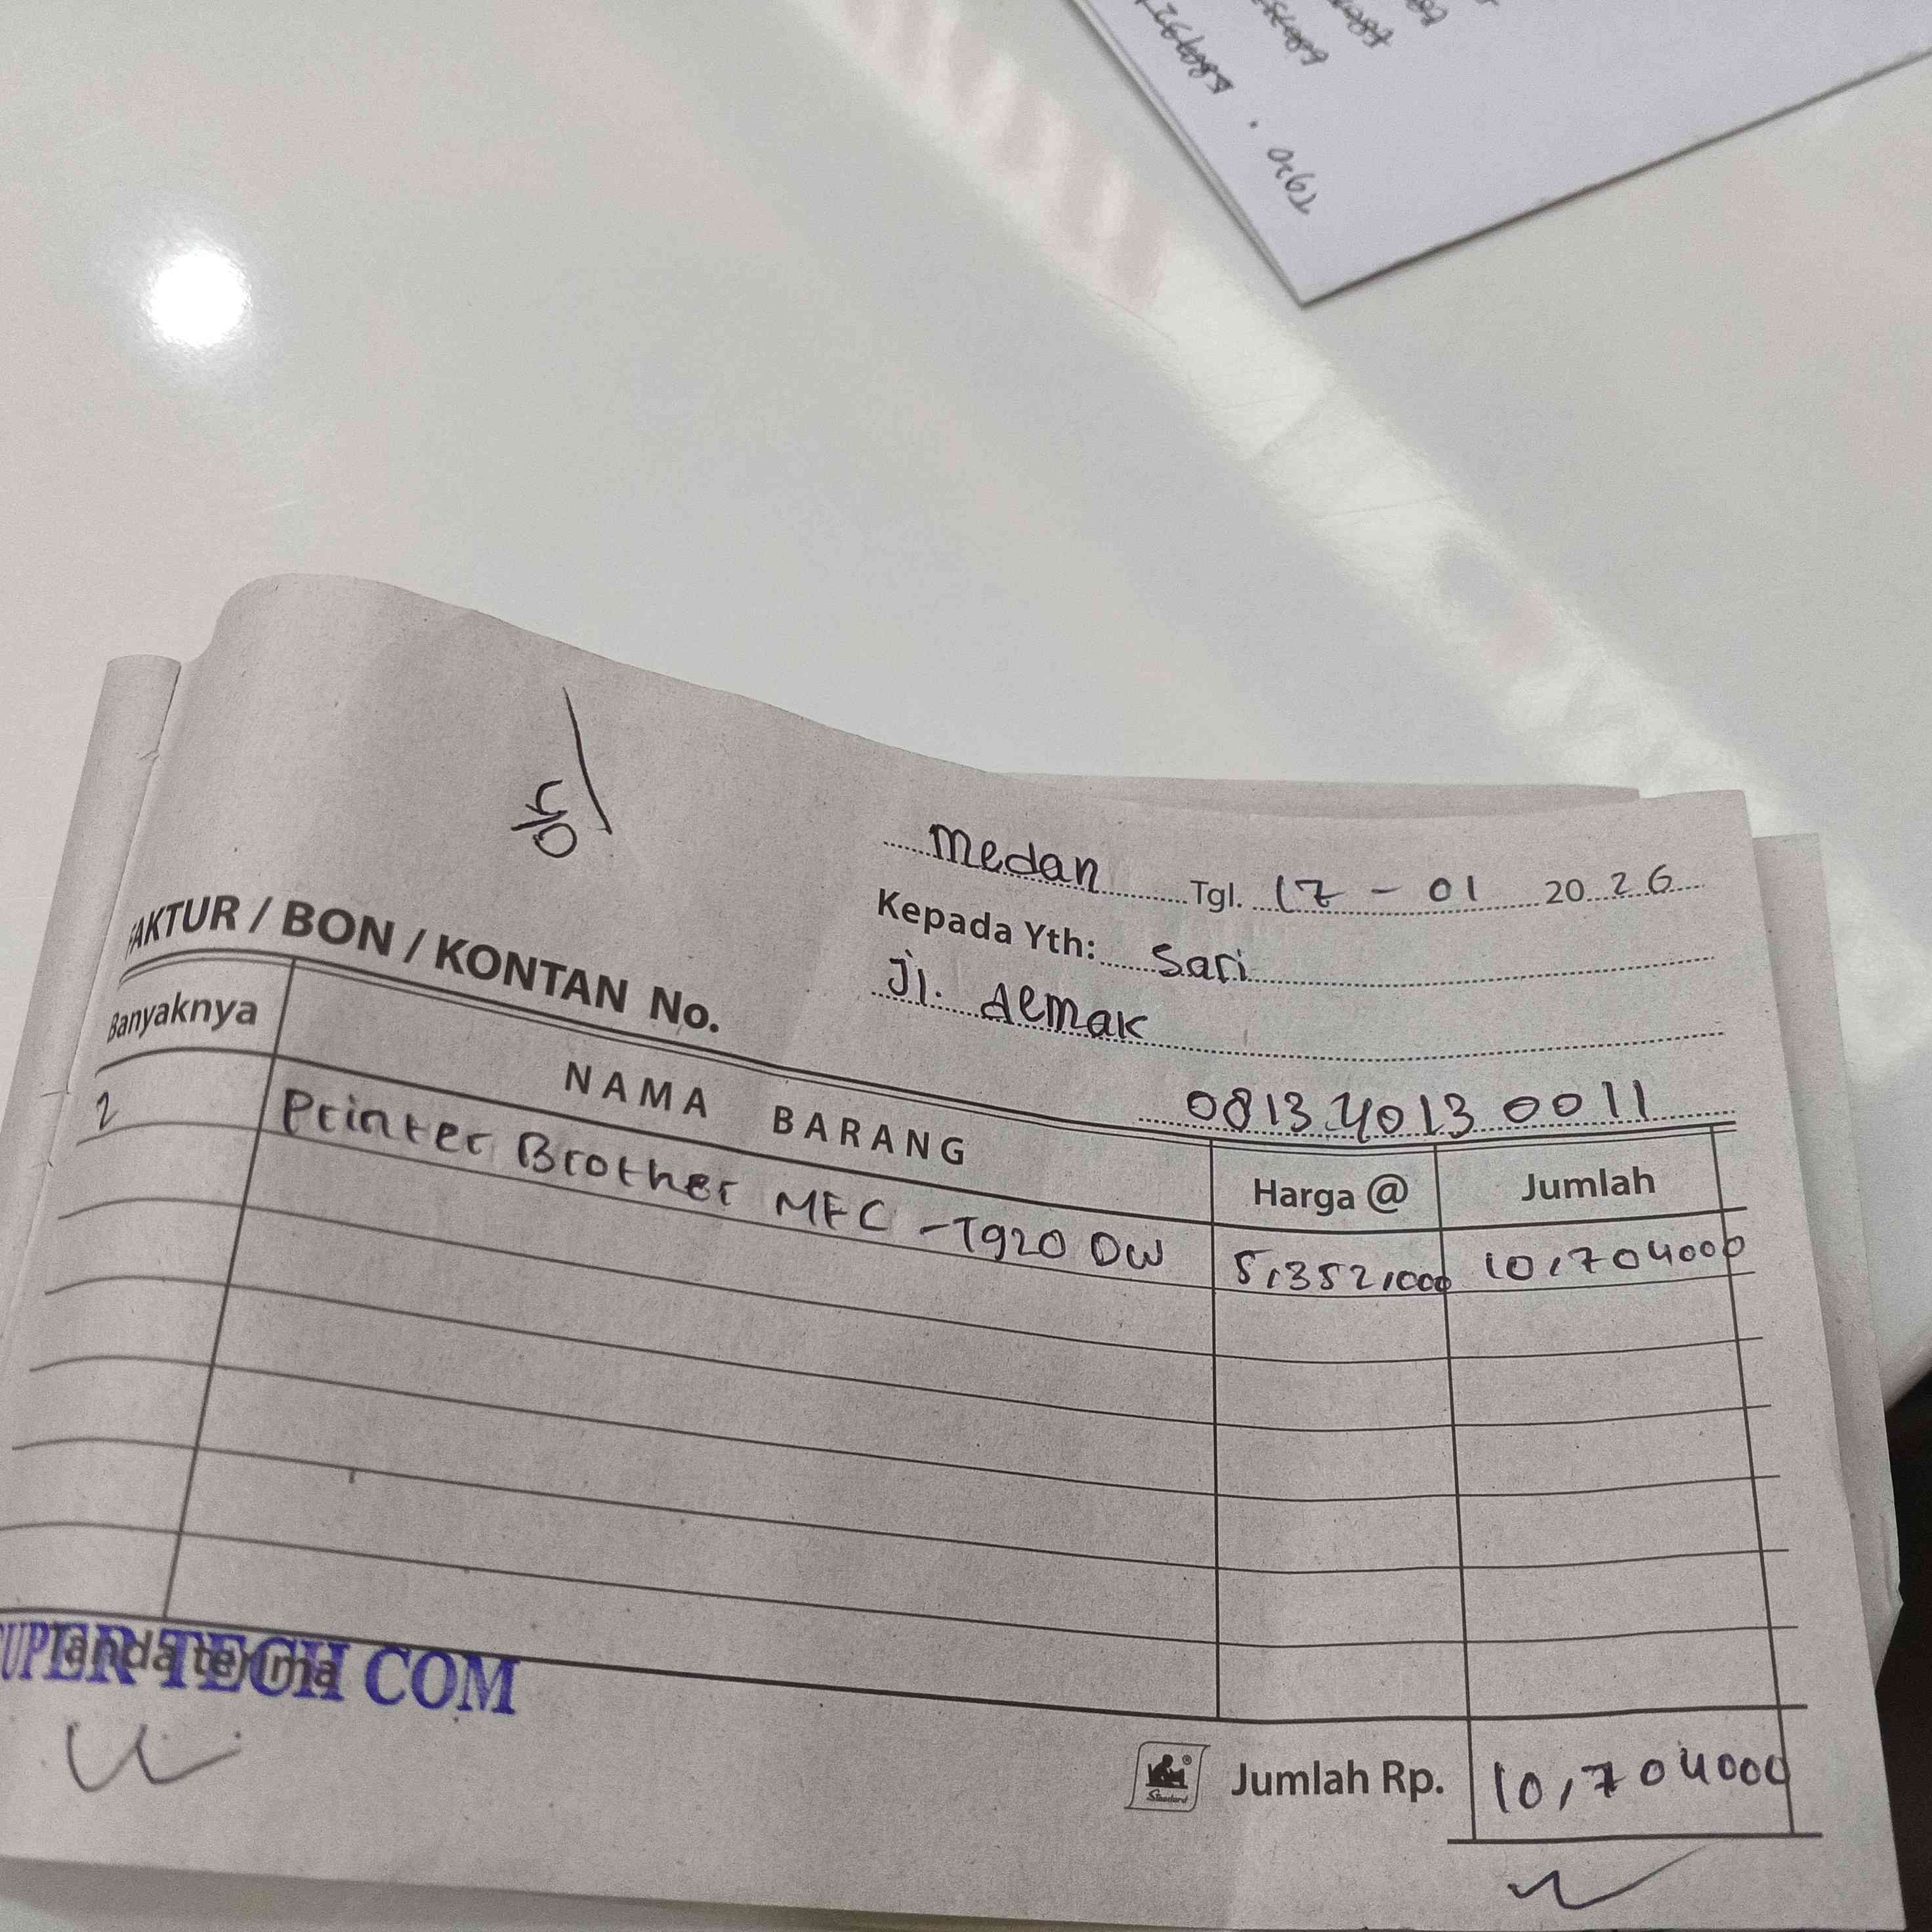 Medan Tgl. 17 - 01 2026
Kepada Yth: Sari
Jl. demak
0813 4013 0011
FAKTUR / BON / KONTAN No.
Banyaknya NAMA BARANG Harga @ Jumlah
2 Printer Brother MFC -T920 DW 5,352,000 10,704000
Tanda terima
SUPER TECH COM
Standard
Jumlah Rp. 10,704000